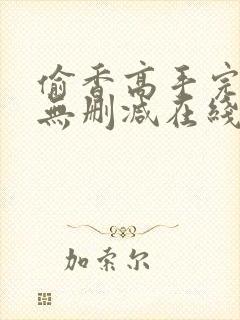 偷香高手完
無刪減在綫
加索尔